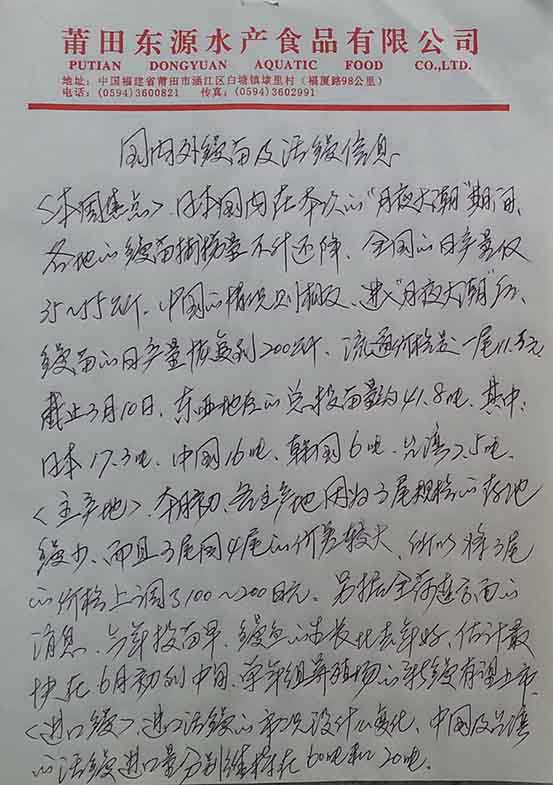 莆田东源水产食品有限公司
PUTIAN DONGYUAN AQUATIC FOOD CO.,LTD.
地址：中国福建省莆田市涵江区白塘镇埭里村（福厦路98公里）
电话：(0594)3600821 传真：(0594)3602991
国内外鳗苗及活鳗信息
<本周焦点>、日本国内在本次的"月夜大潮"期间、
各地的鳗苗捕捞量不升还降、全国的日产量仅
35~55公斤、中国的情况则相反、进入"月夜大潮"后、
鳗苗的日产量恢复到200公斤、流通价格是一尾11.5元
截止3月10日、东亚地区的总投苗量约41.8吨、其中、
日本17.3吨、中国16吨、韩国6吨、台湾2.5吨、
<主产地>、本月初、各主产地因为3尾规格的存池
鳗少、而且3尾同4尾的价差较大、所以将3尾
的价格上调了100~200日元、另据全荷连方面的
消息、今年投苗早、鳗鱼的生长比去年好、估计最
快在6月初到中旬、单年组养殖场的新鳗有望上市、
<进口鳗>、进口活鳗的市况没什么变化、中国及台湾
的活鳗进口量分别维持在60吨和20吨、